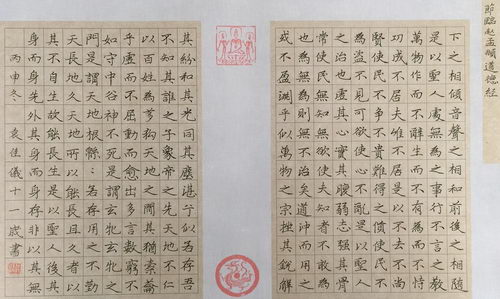 節臨赵孟頫道德經
下之相傾音聲之相和前後之相隨
是以聖人處無為之事行不言之教
萬物作而不辭生而不有為而不恃
功成不居夫惟不居是以不去不尚
賢使民不爭不貴難得之貨使民不
為盜不見可欲使心不亂是以聖人
之治也虛其心實其腹弱志强其骨
常使民無知無欲使夫知者不敢為
也為無為則無不治矣道沖而用之
或不盈淵乎似萬物之宗挫其銳解
其紛和其光同其塵湛兮似若存吾
不知其誰之子象帝之先天地不仁
以百姓為芻狗天地之間其猶橐籥
乎虛而不屈動而愈出多言數窮不
如守中谷神不死是謂玄牝玄牝之
門是謂天地根緜〻若存用之不勤
天長地久天地所以能長且久者以
其不自生故能長生是以聖人後其
身而身先外其身而身存非以其無
丙申冬 袁佳儀十一歲書